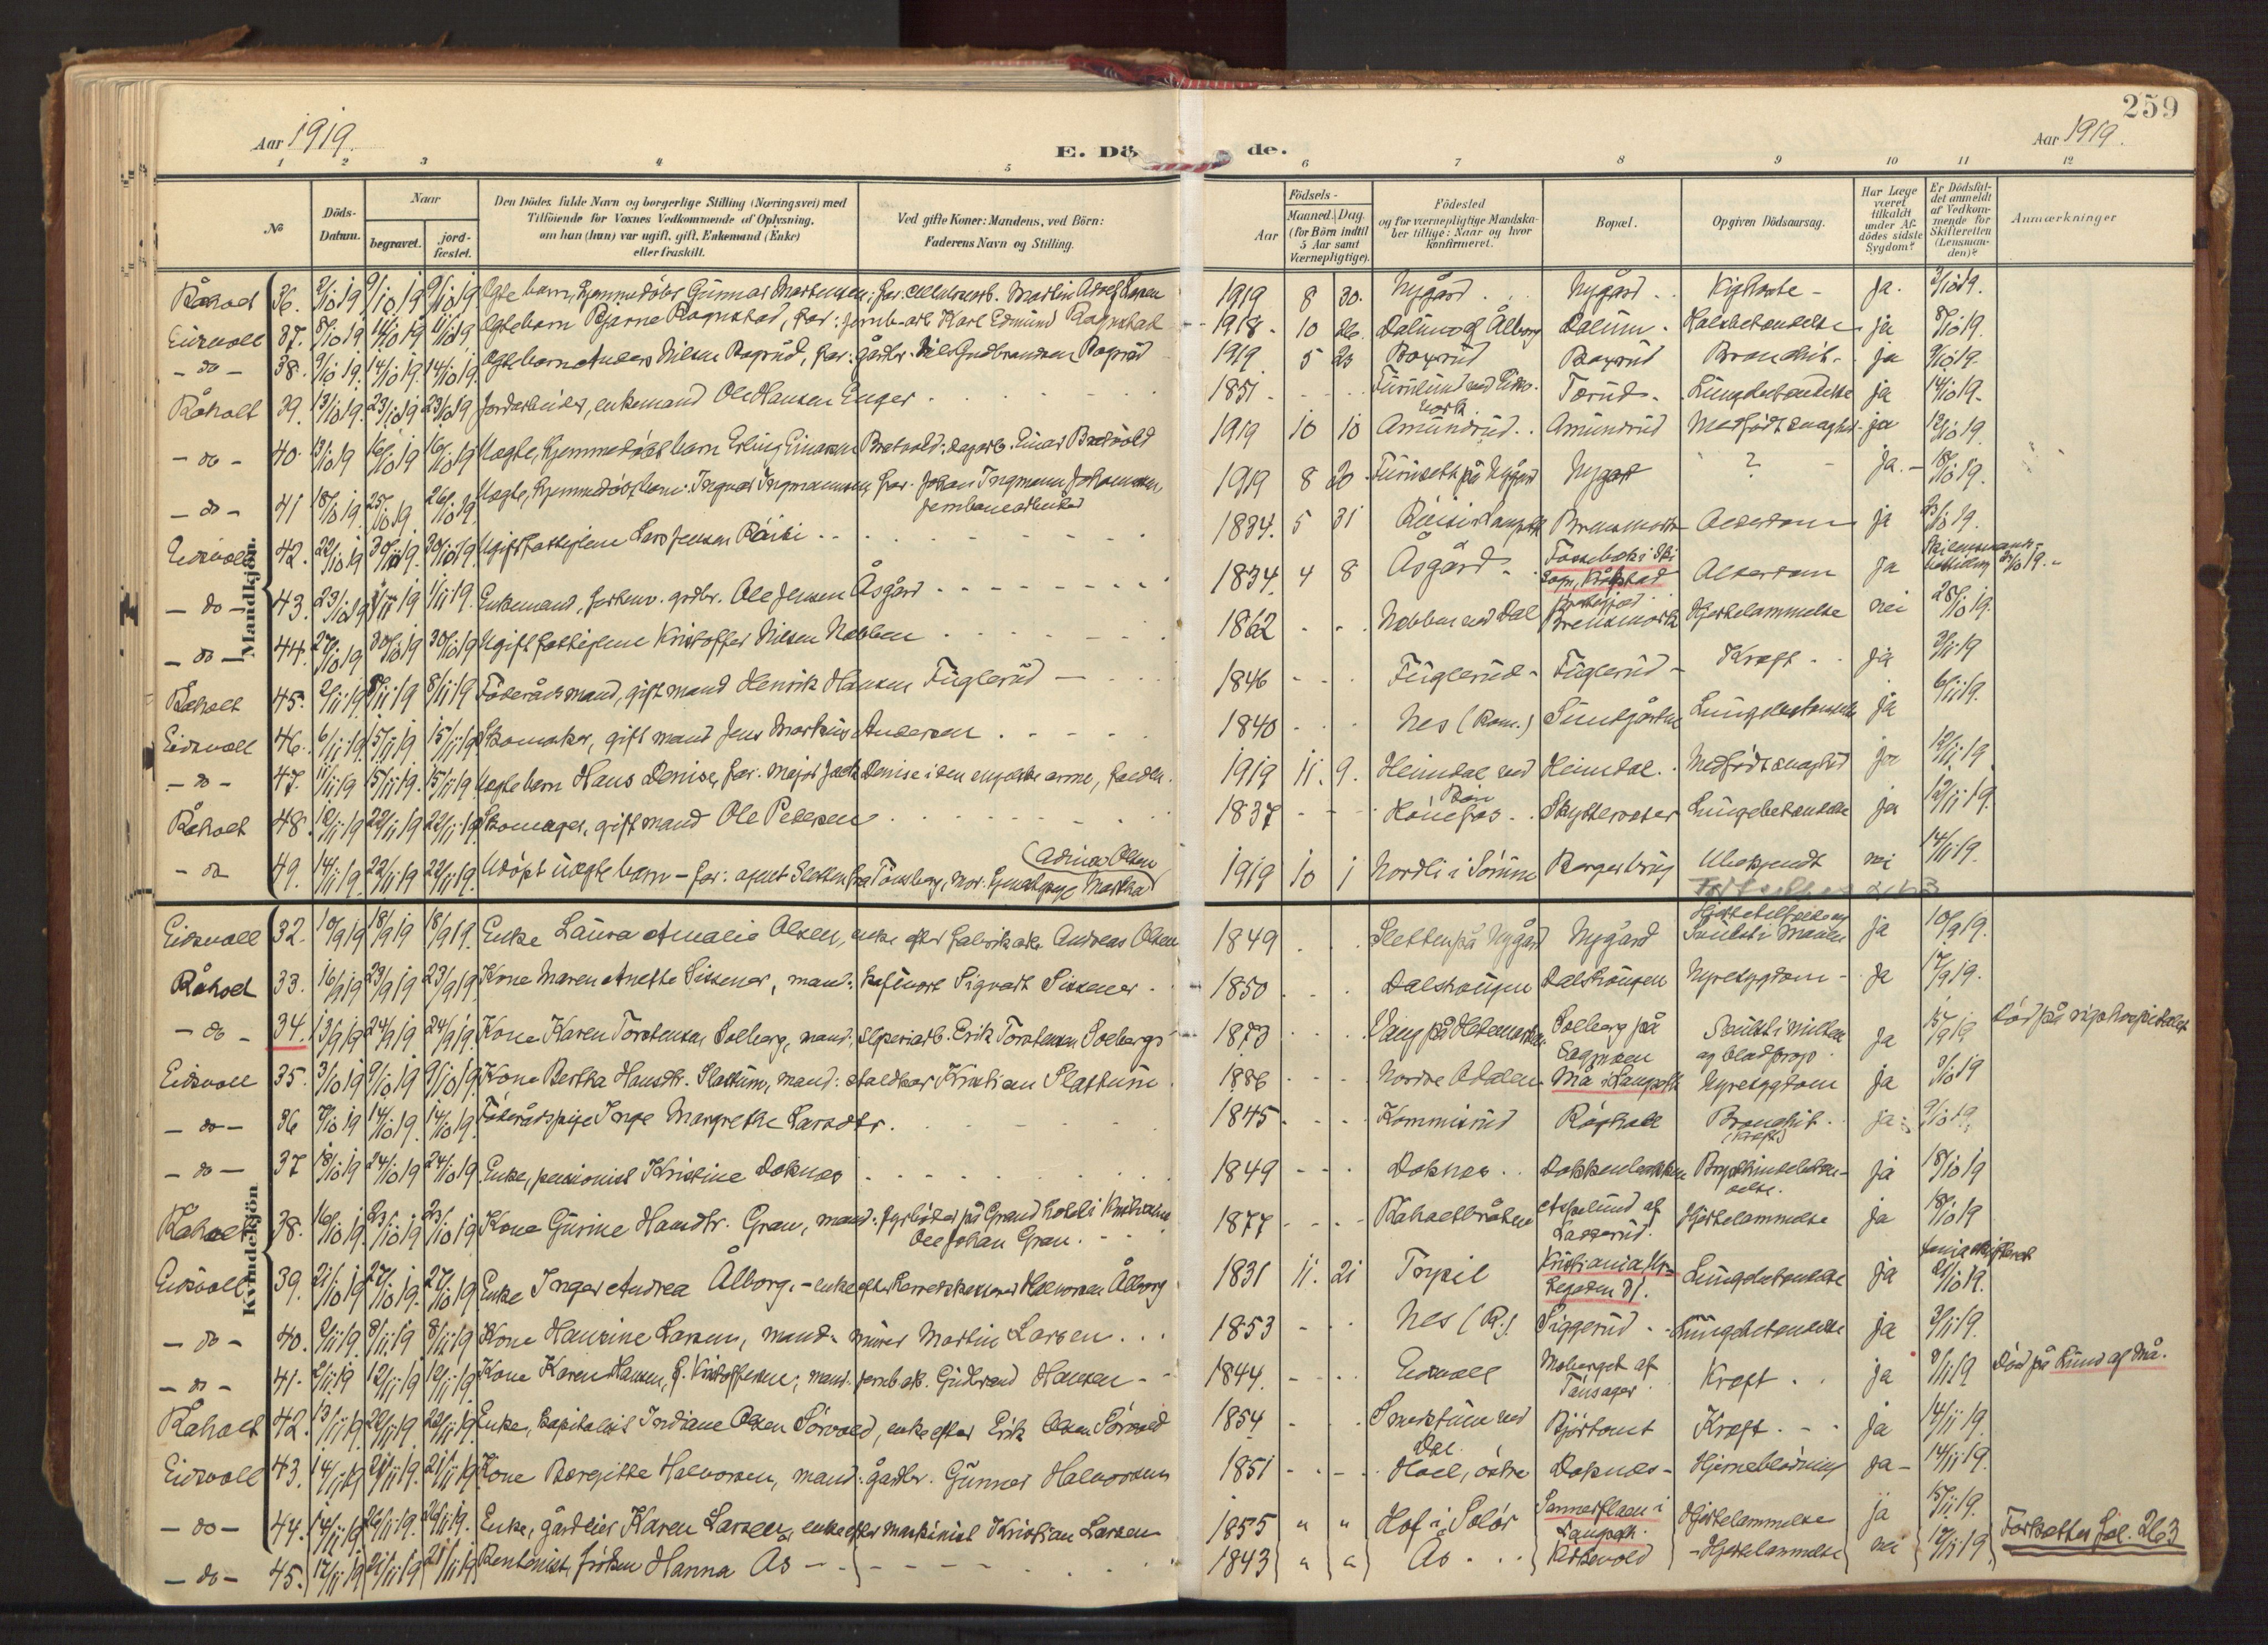 259
Aar 1919.
E. Dö de.
Aar 1919.
1 2 3 4 5 6 7 8 9 10 11 12
No
Döds-Datum.
Naar
begravet.
jord-fæstet.
Den Dödes fulde Navn og borgerlige Stilling (Næringsvei) med
Tilföiende for Voxnes Vedkommende af Oplysning,
om han (hun) var ugift, gift, Enkemand (Enke)
eller fraskilt.
Ved gifte Koner: Mandens, ved Börn:
Faderens Navn og Stilling.
Aar
Födsels-
Maaned. Dag.
(for Börn indtil
5 Aar samt
Værnepligtige).
Födested
og for værnepligtige Mandska-
ber tillige: Naar og hvor
konfirmeret.
Bopæl.
Opgiven Dödsaarsag.
Har Læge
været
tilkaldt
under Af-
dödes sidste
Sygdom?
Er Dödsfal-
det anmeldt
af Vedkom-
mende for
Skifteretten
(Lensman-
den)?
Anmærkninger
Mandkjön.
Råholt 36. 2/10 19 9/10 19 9/10 19 Ægte barn, hjemmedöbt Gunnar Martinsen, far: Martin Adolf Larsen 1919 8 30. Nygård Nygård Kighoste - ja. 3/10 19.
Eidsvoll 37. 8/10 19 14/10 19 14/10 19 Ægte barn Bjarne Ragnstad, far: jernb.arb. Karl Edmund Ragnstad 1918 - 10 26 Dalum af Ålborg Dalum - Halsbetændelse ja 8/10 19.
- do - 38. 9/10 19. 14/10 19. 14/10 19. Ægte barn Anders Nilsen Bagrud, far: gårdbr. Nils Gudbrandsen Bagrud 1919 5 23 Bagrud Bagrud Bronchit - ja 9/10 19.
Råholt 39. 13/10 19. 23/10 19 23/10 19 Jordarbeider, enkemand Ole Hansen Enger 1851 - Torud - Lungebetændelse ja 14/10 19.
- do - 40. 13/10 19 16/10 19 16/10 19 Uægte, hjemmedöbt barn Erling Einarsen Bratvold: dagarb. Einar Bratvold 1919 10 10 Amundrud Amundrud Medfödt svaghet ja 13/10 19.
- do - 41 18/10 19. 25/10 19. 26/10 19. Uægte, hjemmedöbt barn: Ingvar Ingmannsen, far: Johan Ingmann Johansen, jernbanearbeider 1919 8 20 Furuseth på Nygård Nygård ? ja. - 18/10 19.
Eidsvoll 42. 22/10 19 30/10 19. 30/10 19 Ugift fattiglem Lars Jensen Räisi 1834. 5 31 Alderdom ja 23/10 19.
- do - 43. 23/10 19 1/11 19 1/11 19. Enkemand, forhenv. grdbr. Ole Jensen Åsgård 1834. 4 8 Åsgård - Alderdom ja
- do - 44. 27/10 19 30/10 19 30/10 19 Ugift fattiglem Kristoffer Nilsen Nebben 1862 - - Nebben ved Dal Hjertelammelse nei 28/10 19.
Råholt 45. 2/11 19. 8/11 19 8/11 19 Föderådsmand, gift mand Henrik Hansen Fuglerud - 1846 - - Fuglerud - Fuglerud - Kræft ja 3/11 19
Eidsvoll 46. 6/11 19. 15/11 19 15/11 19 Skomaker, gift mand Jens Markus Andersen 1840 - Nes (Rom.) Lungebetændelse ja 6/11 19.
- do - 47. 11/11 19 15/11 19. 15/11 19 Uægte barn Hans Denise, far: Major Jack Denise i den engelske arme, 1919 11. 9. Heimdal ved Bøn Heimdal Medfödt svaghed ja 12/11 19.
Råholt 48. 12/11 19 22/11 19 22/11 19 Skomager, gift mand Ole Petersen 1837 - - Hönefos Lungebetændelse ja 13/11 19.
- do 49. 14/11 19. 22/11 19 22/11 19. Udöpt uægte barn - far: agent Sletten fra Tönsberg, mor: Martha (Adina) Olsen 1919 10 1 Nordli i Sörum Ubekjendt nei 14/11 19.
Kvindekjön
Eidsvoll 32. 10/9 19 18/9 19 18/9 19. Enke Laura Amalie Olsen, enke efter fabrikarb. Andreas Olsen 1849 Sletten på Nygård Nygård ja 10/9 19.
Råholt 33. 16/9 19 23/9 19 23/9 19. Kone Maren Anette Sissener, mand: Sigvart Sissener 1850 Dalshaugen Dalshaugen Nyresygdom - ja 17/9 19.
- do - 34. 13/9 19 24/9 19 24/9 19. Kone Karen Torstensen Solberg, mand: sliperiarb. Erik Torstensen Solberg 1873 Vang på Hedemarken Solberg på ja 15/9 19 död på rigshospitalet
Eidsvoll 35. 3/10 19 9/10 19 9/10 19. Kone Bertha Hansdtr. Slattum, mand: Kristian Slattum 1886 - Nordre Odalen Nyresygdom ja 3/10 19
- do - 36 7/10 19 14/10 19. 14/10 19. Föderådspige Inge Margrethe Larsdtr. 1845 - Kommisrud Röyhall Bronchit (kræft) ja 9/10 19.
- do - 37 18/10 19 24/10 19 24/10 19 Enke, pensionist Kristine Doknes 1849 - - Doknes ja 18/10 19
Råholt 38. 16/10 19. 23/10 19 23/10 19 Kone Gurine Hansdtr. Gran, mand: fyrböter på Grand hotel i Kristiania Ole Johan Gran. 1877 - - - Råholtbråten Hjertelammelse ja 18/10 19
Eidsvoll 39. 21/10 19 27/10 19. 27/10 19 Enke Inger Andrea Ålborg. - enke efter herredskasserer Halvorsen Ålborg 1831 11. 21 Trysil Kristiania Lungebetændelse ja 21/10 19.
- do - 40. 2/11 19. 8/11 19 8/11 19. Kone Hansine Larsen, mand: murer Martin Larsen 1853 - - Nes (R.) Siggerud - Lungebetændelse ja 3/11 19.
- do - 41. 2/11 19 12/11 19 12/11 19. Kone Karen Hansen, f. Kristoffersen; mand: jernb.arb. Gudbrand Hansen - 1844. - - Eidsvoll Moberget af Kræft ja 3/11 19 Död på Lund af Må.
Råholt 42. 13/11 19. 22/11 19 22/11 19. Enke, kapitalist Indiane Olsen Sörvold, enke efter Erik Olsen Sörvold 1854 - Smestuen ved Dal Björtomt Kræft - - ja 14/11 19.
Eidsvoll 43. 14/11 19 21/11 19. 21/11 19. Kone Bergitte Halvorsen, mand: gårdbr. Gunnar Halvorsen 1851 - - - Hoel, östre Doknes - Hjerneblödning ja - 14/11 19.
- do - 44. 14/11 19 26/11 19. 26/11 19. Enke, gårdeier Karen Larsen, enke efter maskinist Kristian Larsen 1855 " " Hof i Solör Hjertelammelse ja 15/11 19.
- do - 45. 17/11 19 21/11 19 21/11 19 Rentenist, fröken Hanna Ås - - 1843 " " Ås Kirkevold - Hjertelammelse nei 17/11 19 Fortsættes fol. 263